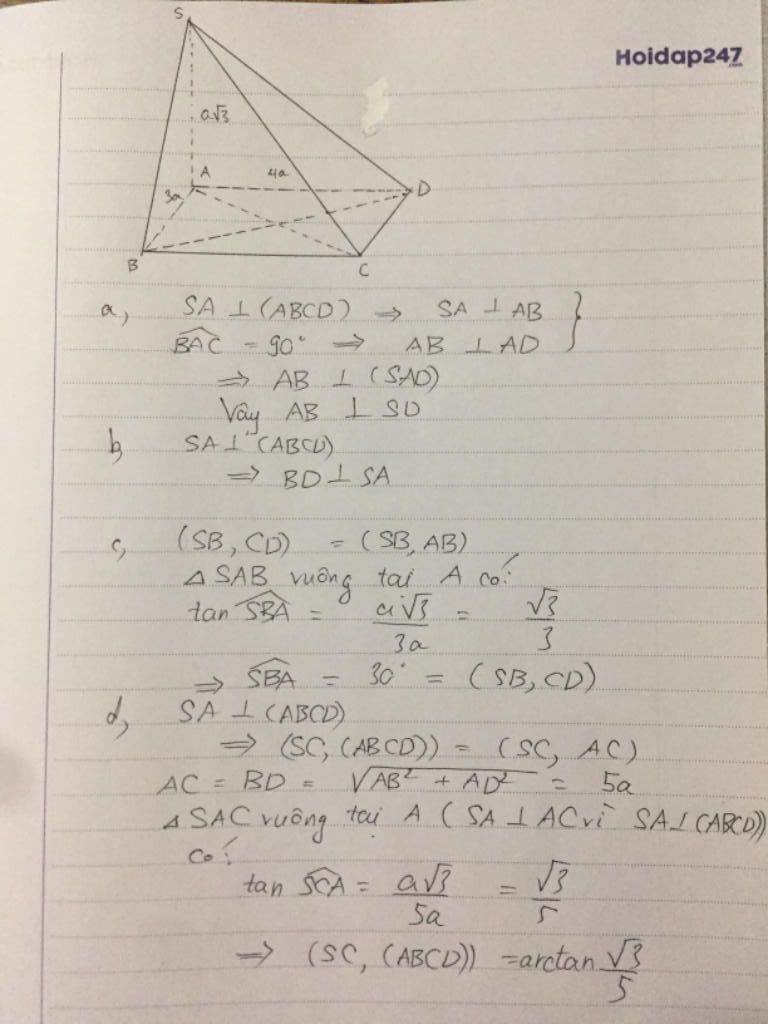 Hoidap247
.com
S
a√3
A
4a
3a
D
B
C
a, SA ⊥ (ABCD) ⇒ SA ⊥ AB }
BAC^ = 90° ⇒ AB ⊥ AD
⇒ AB ⊥ (SAD)
Vây AB ⊥ SD
b, SA ⊥ (ABCD)
⇒ BD ⊥ SA
c, (SB, CD) = (SB, AB)
△ SAB vuông tai A có:
tan SBA^ = a√3/3a = √3/3
⇒ SBA^ = 30° = (SB, CD)
d, SA ⊥ (ABCD)
⇒ (SC, (ABCD)) = (SC, AC)
AC = BD = √(AB² + AD²) = 5a
△ SAC vuông tại A (SA ⊥ AC vì SA ⊥ (ABCD))
có:
tan SCA^ = a√3/5a = √3/5
⇒ (SC, (ABCD)) = arctan √3/5